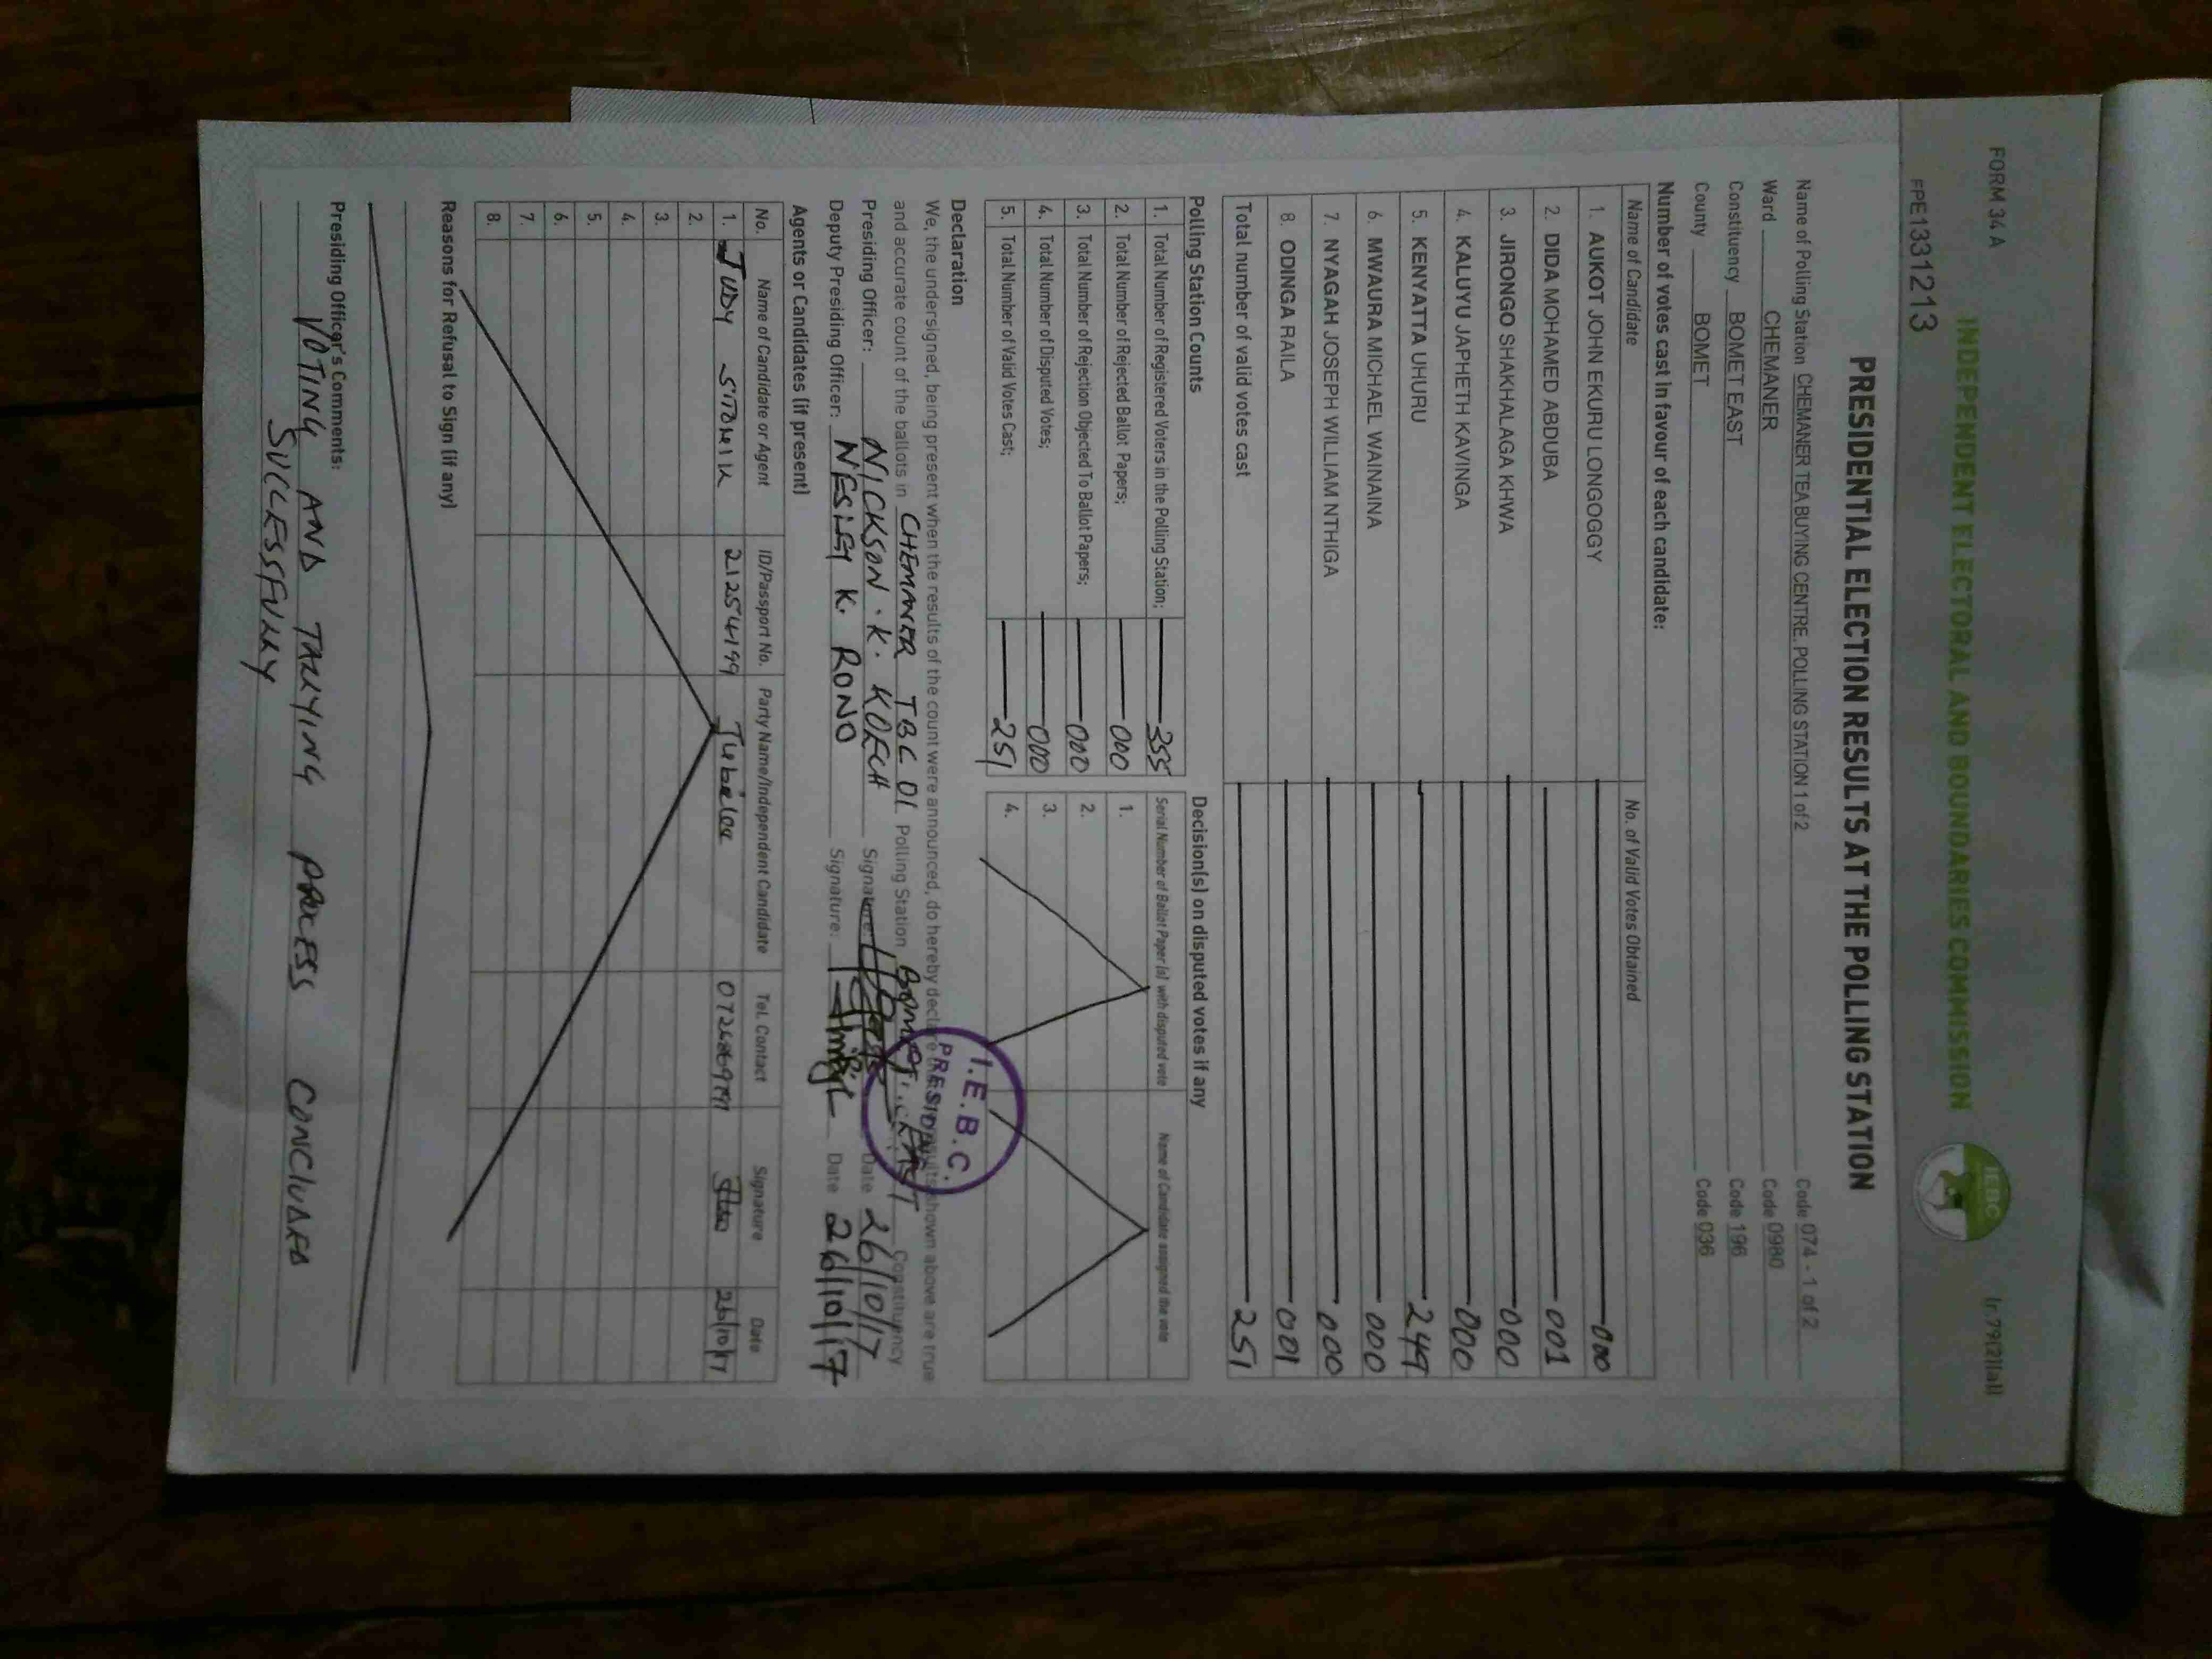 FORM 34 A
Ir.79(2)(a)
INDEPENDENT ELECTORAL AND BOUNDARIES COMMISSION
IEBC
FPE1331213
PRESIDENTIAL ELECTION RESULTS AT THE POLLING STATION
Name of Polling Station CHEMANER TEA BUYING CENTRE. POLLING STATION 1 of 2 Code 074 - 1 of 2
Ward CHEMANER Code 0980
Constituency BOMET EAST Code 196
County BOMET Code 036
Number of votes cast in favour of each candidate:
Name of Candidate No. of Valid Votes Obtained
1. AUKOT JOHN EKURU LONGOGGY 000
2. DIDA MOHAMED ABDUBA 001
3. JIRONGO SHAKHALAGA KHWA 000
4. KALUYU JAPHETH KAVINGA 000
5. KENYATTA UHURU 249
6. MWAURA MICHAEL WAINAINA 000
7. NYAGAH JOSEPH WILLIAM NTHIGA 000
8. ODINGA RAILA 001
Total number of valid votes cast 251
Polling Station Counts
1. Total Number of Registered Voters in the Polling Station; 355
2. Total Number of Rejected Ballot Papers; 000
3. Total Number of Rejection Objected To Ballot Papers; 000
4. Total Number of Disputed Votes; 000
5. Total Number of Valid Votes Cast; 251
Decision(s) on disputed votes if any
Serial Number of Ballot Paper (s) with disputed vote Name of Candidate assigned the vote
1.
2.
3.
4.
Declaration
We, the undersigned, being present when the results of the count were announced, do hereby declare results shown above are true
and accurate count of the ballots in CHEMANER TBC 01 Polling Station BOMET EAST Constituency
Presiding Officer: NICKSON . K. KOECH Signature: Date 26/10/17
Deputy Presiding Officer: K. RONO Signature: Date 26/10/17
I.E.B.C.
Agents or Candidates (if present)
No. Name of Candidate or Agent ID/Passport No. Party Name/Independent Candidate Tel. Contact Signature Date
1. JUDY 21254199 Jubilee 26/10/17
2.
3.
4.
5.
6.
7.
8.
Reasons for Refusal to Sign (if any)
Presiding Officer's Comments:
VOTING AND TALLYING PROCESS CONCLUDED
SUCCESSFULLY